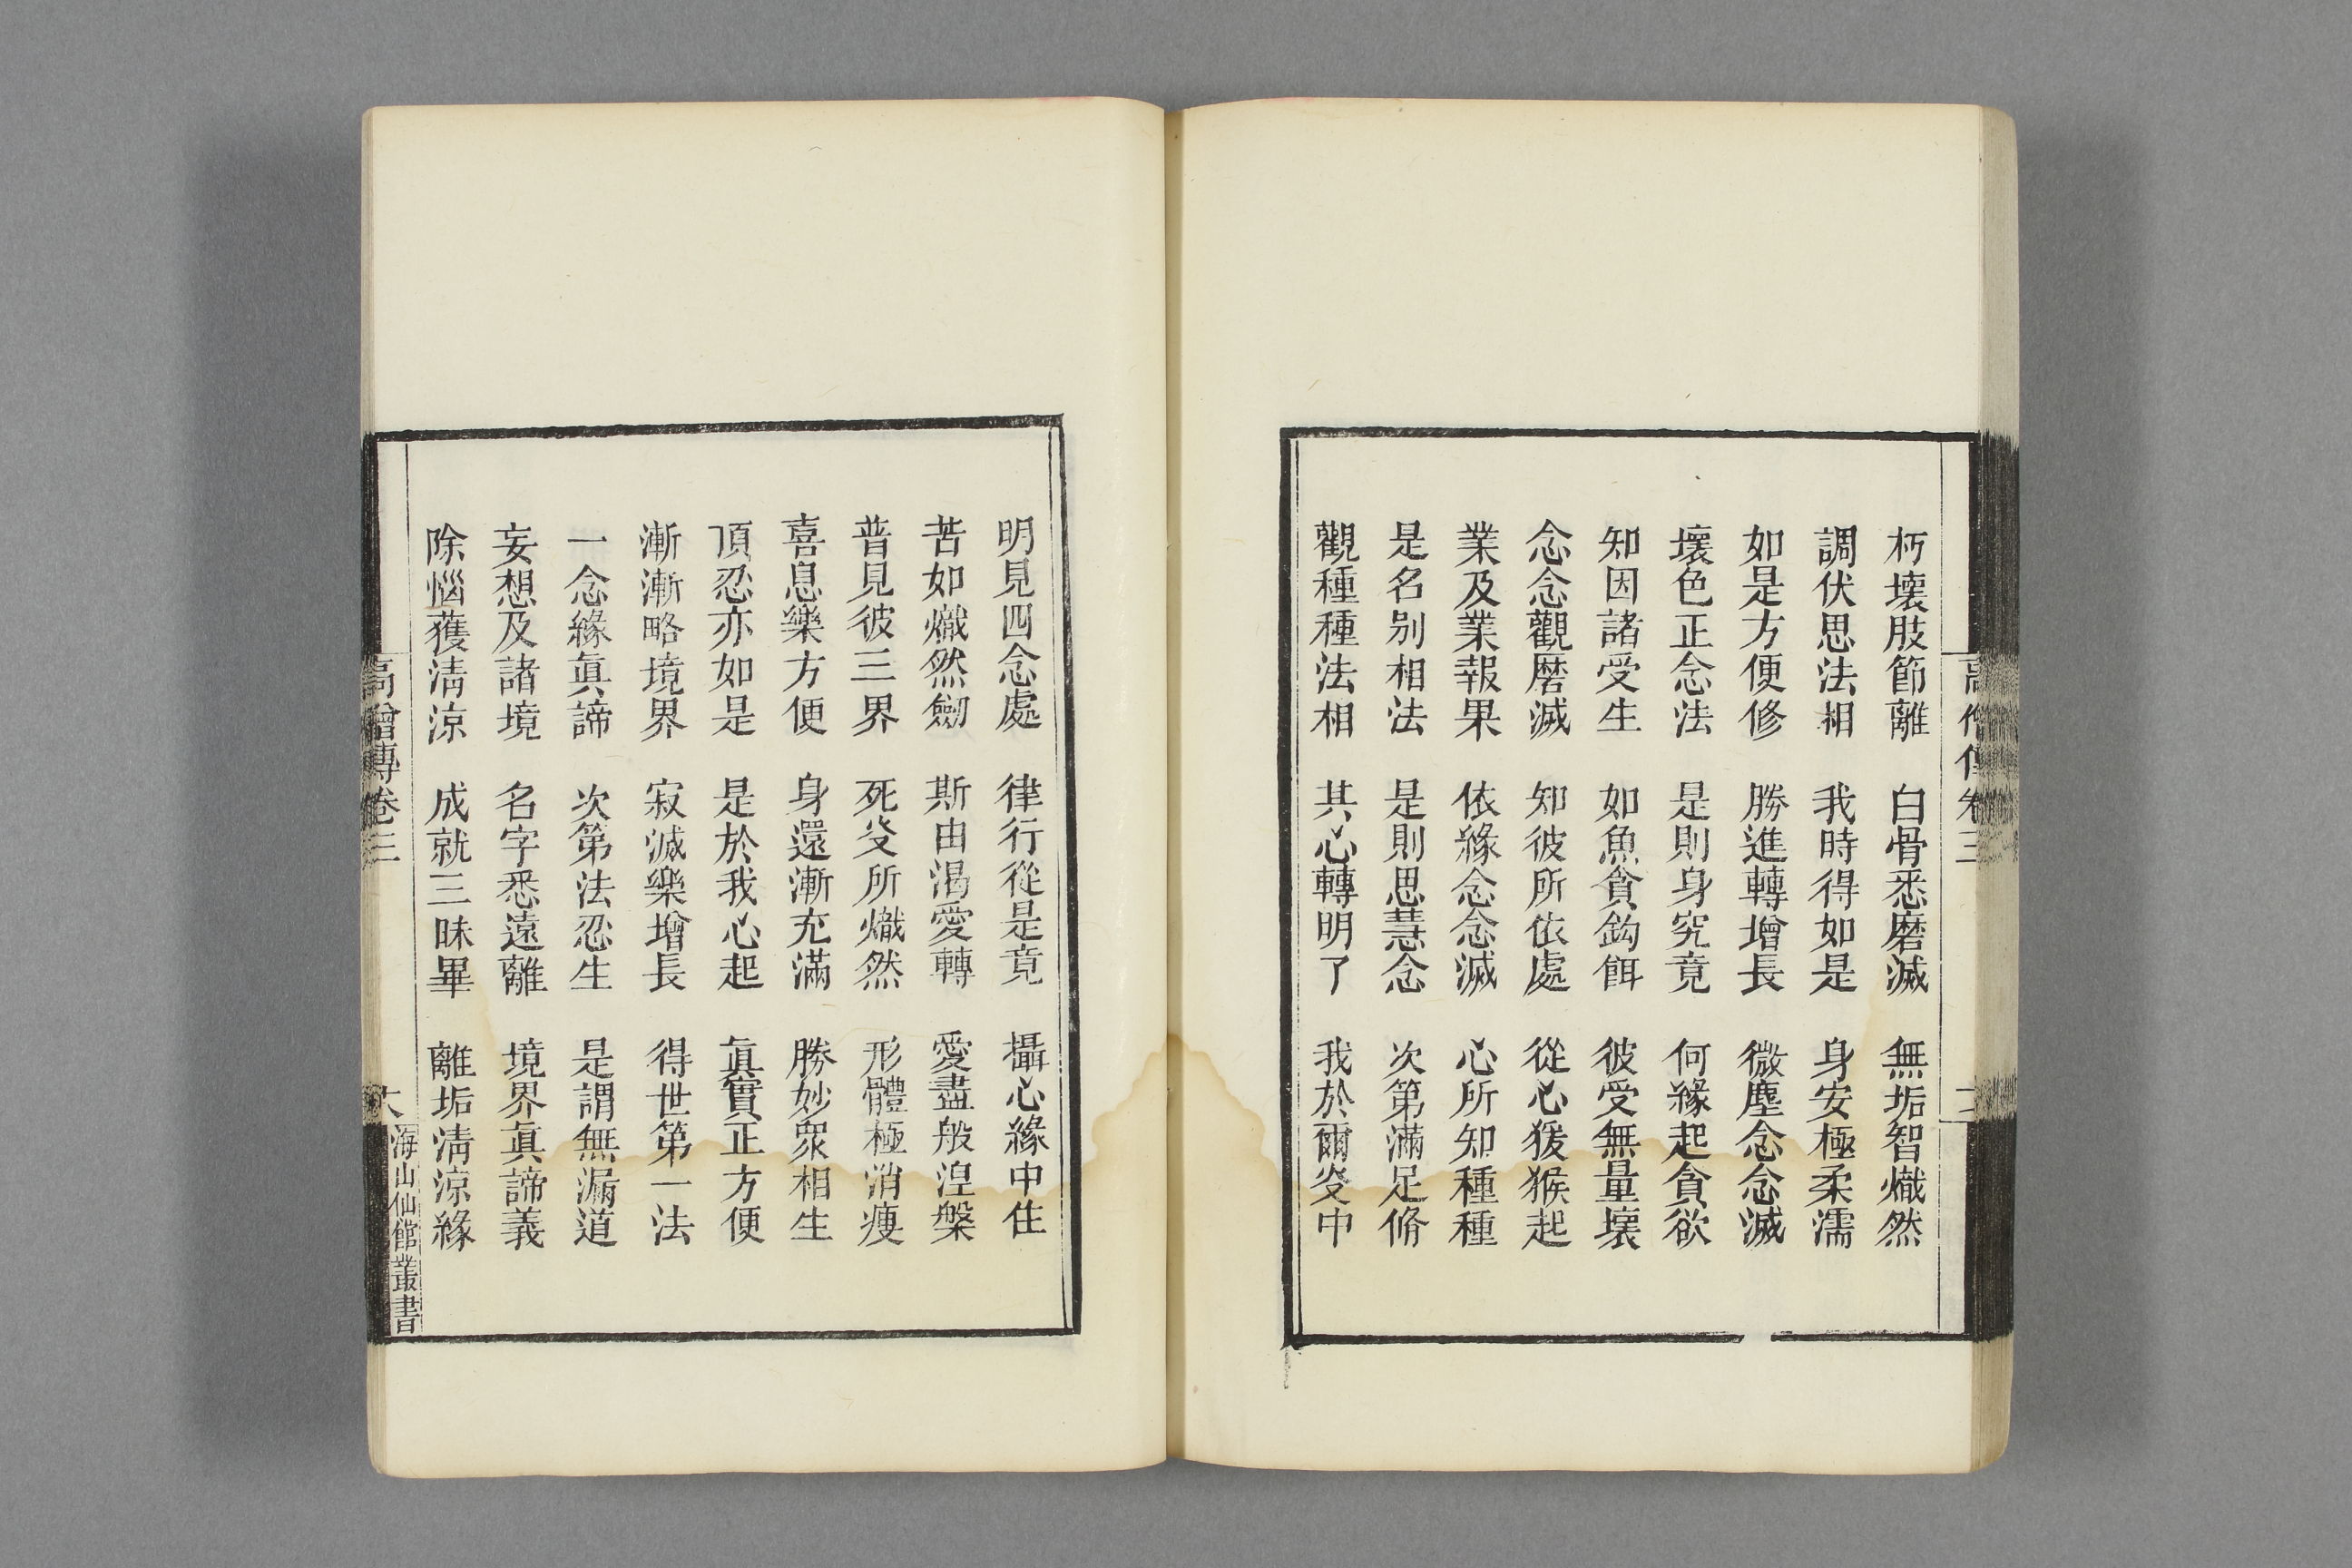 朽壞肢節離　白骨悉磨滅　無垢智熾然
調伏思法相　我時得如是　身安極柔濡
如是方便修　勝進轉增長　微塵念念滅
壞色正念法　是則身究竟　何緣起貪欲
知因諸受生　如魚貪鈎餌　彼受無量壞
念念觀磨滅　知彼所依處　從心猨猴起
業及業報果　依緣念念滅　心所知種種
是名别相法　是則思慧念　次第滿足脩
觀種種法相　其心轉明了　我於爾㷋中
明見四念處　律行從是竟　攝心緣中住
苦如熾然劒　斯由渴愛轉　愛盡般湼槃
普見彼三界　死㷋所熾然　形體極消瘦
喜息樂方便　身還漸充滿　勝妙衆相生
頂忍亦如是　是於我心起　眞實正方便
漸漸略境界　寂滅樂增長　得世第一法
一念緣眞諦　次第法忍生　是謂無漏道
妄想及諸境　名字悉遠離　境界眞諦義
除惱獲淸涼　成就三昧畢　離垢淸涼緣
高僧傳卷三
海山仙館叢書